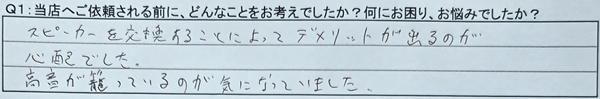 Q1:当店へご依頼される前に、どんなことをお考えでしたか?何にお困り、お悩みでしたか?
スピーカーを交換することによってデメリットが出るのが
心配でした。
高音が籠っているのが気になっていました。